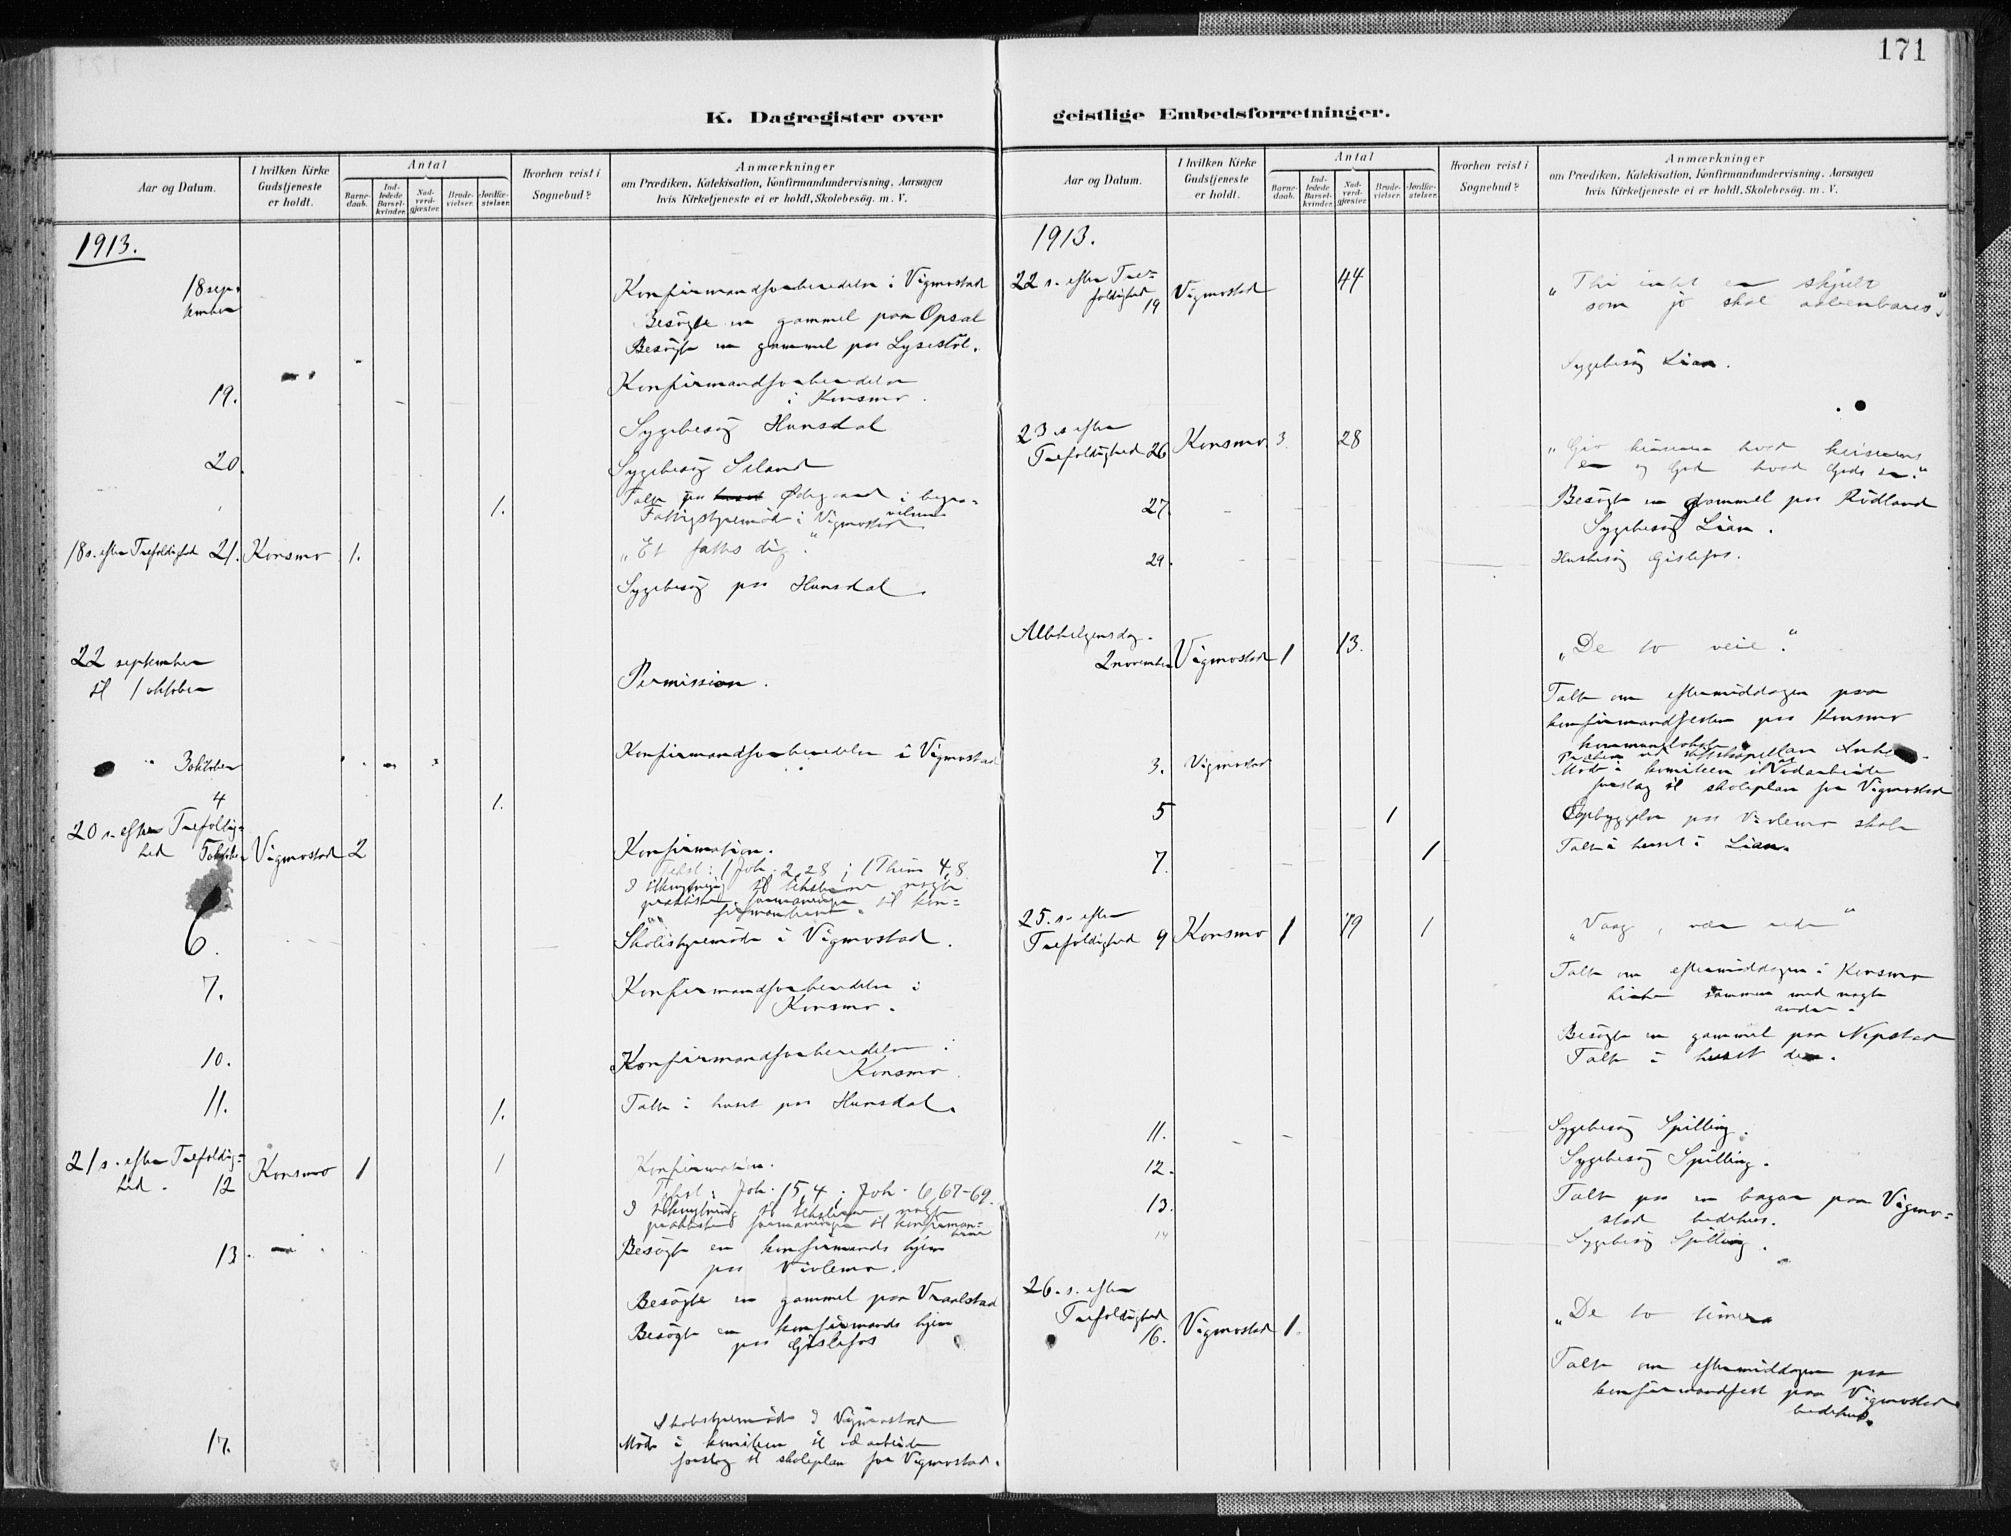 171
K. Dagregister over
geistlige Embedsforretninger.
Aar og Datum.
I hvilken Kirke Gudstjeneste er holdt.
Antal
Barne-daab.
Ind-ledede Barsel-kvinder.
Nad-verd-gjæster.
Brude-vielser.
Jordfæ-stelser.
Hvorhen reist i Sognebud?
Anmærkninger
om Prædiken, Katekisation, Konfirmandundervisning, Aarsagen
hvis Kirketjeneste ei er holdt, Skolebesög. m. V.
1913.
18 sep-
tember
Konfirmandforberedelse i Vigmostad
Besögte en gammel paa Opsal
Besögte en gammel paa Lysestöl.
19.
Konfirmandforberedelse
i Konsmo.
Sygebesög Hunsdal
20.
Sygebesög Seland
1. Talte paa Ödegaard i begra-
velse
Fattigstyremöde i Vigmostad
18 s. efter Trefoldighed 21. Konsmo 1. "Et fattes dig."
Sygebesög paa Hunsdal.
22 september
til 1 oktober
Permission.
3 oktober
Konfirmandforberedelse i Vigmostad
4 1.
20 s. efter Trefoldig-
hed 5 oktober Vigmostad 2 Konfirmation.
Tekst: 1 Joh. 2,28; 1 Thim 4,8.
I tilknytning til teksterne nogle
praktiske formaninger til kon-
firmanterne.
6.
Skolestyremöde i Vigmostad.
7.
Konfirmandforberedelse i
Konsmo.
10.
Konfirmandforberedelse i
Konsmo.
11. 1. Talte i huset paa Hunsdal.
21 s. efter Trefoldig-
hed. 12 Konsmo 1 1 Konfirmation.
Tekst: Joh. 15,4; Joh. 6,67-69.
I tilknytning til teksterne nogle
praktiske formaninger til konfirman-
terne
13.
Besögte en konfirmands hjem
paa Vivlemo.
Besögte en gammel paa Vraalstad
Besögte en konfirmands hjem
paa Gislefos
17.
Skolestyremöde i Vigmostad
Möde i komiteen til udarbeide
forslag til skoleplan for Vigmostad.
Aar og Datum.
I hvilken Kirke Gudstjeneste er holdt.
Antal
Barne-daab.
Ind-ledede Barsel-kvinder.
Nad-verd-gjæster.
Brude-vielser.
Jordfæ-stelser.
Hvorhen reist i Sognebud?
Anmærkninger
om Prædiken, Katekisation, Konfirmandundervisning, Aarsagen
hvis Kirketjeneste ei er holdt, Skolebesög. m. V.
1913.
22 s. efter Tre-
foldighed 19 Vigmostad 44 "Thi intet er skjult
som jo skal aabenbares".
Sygebesög Lian.
23 s. efter
Trefoldighed 26 Konsmo. 3. 28 "Giv keiseren hvad keiserens
er og Gud hvad Guds er."
27.
Besögte en gammel paa Rödland
Sygebesög Lian.
29.
Husbesög Gislefos.
Allehelgensdag.
2 november Vigmostad 1 13. "De to veie".
Talte om eftermiddagen paa
konfirmandfesten paa Konsmo
kommunelokale
3. Vigmostad
Möde i komiteen til udarbeide
forslag til skoleplan for Vigmostad
5 1 Opbyggelse paa Vivlemo skole
7. 1 Talte i huset i Lian.
25. s. efter
Trefoldighed 9 Konsmo 1 19 1 "Vaag, vær rede"
Talte om eftermiddagen i Konsmo
kirke sammen med nogle
andre.
Besögte en gammel paa Nepstad
Talte i huset der.
11.
Sygebesög Spilling.
12.
Sygebesög Spilling.
13.
Talte paa en bazar paa Vigmo-
stad bedehus.
14
Sygebesög Spilling.
26. s. efter
Trefoldighed
16. Vigmostad 1. "De to timer
Talte om eftermiddagen paa
konfirmandfest paa Vigmostad
bedehus.